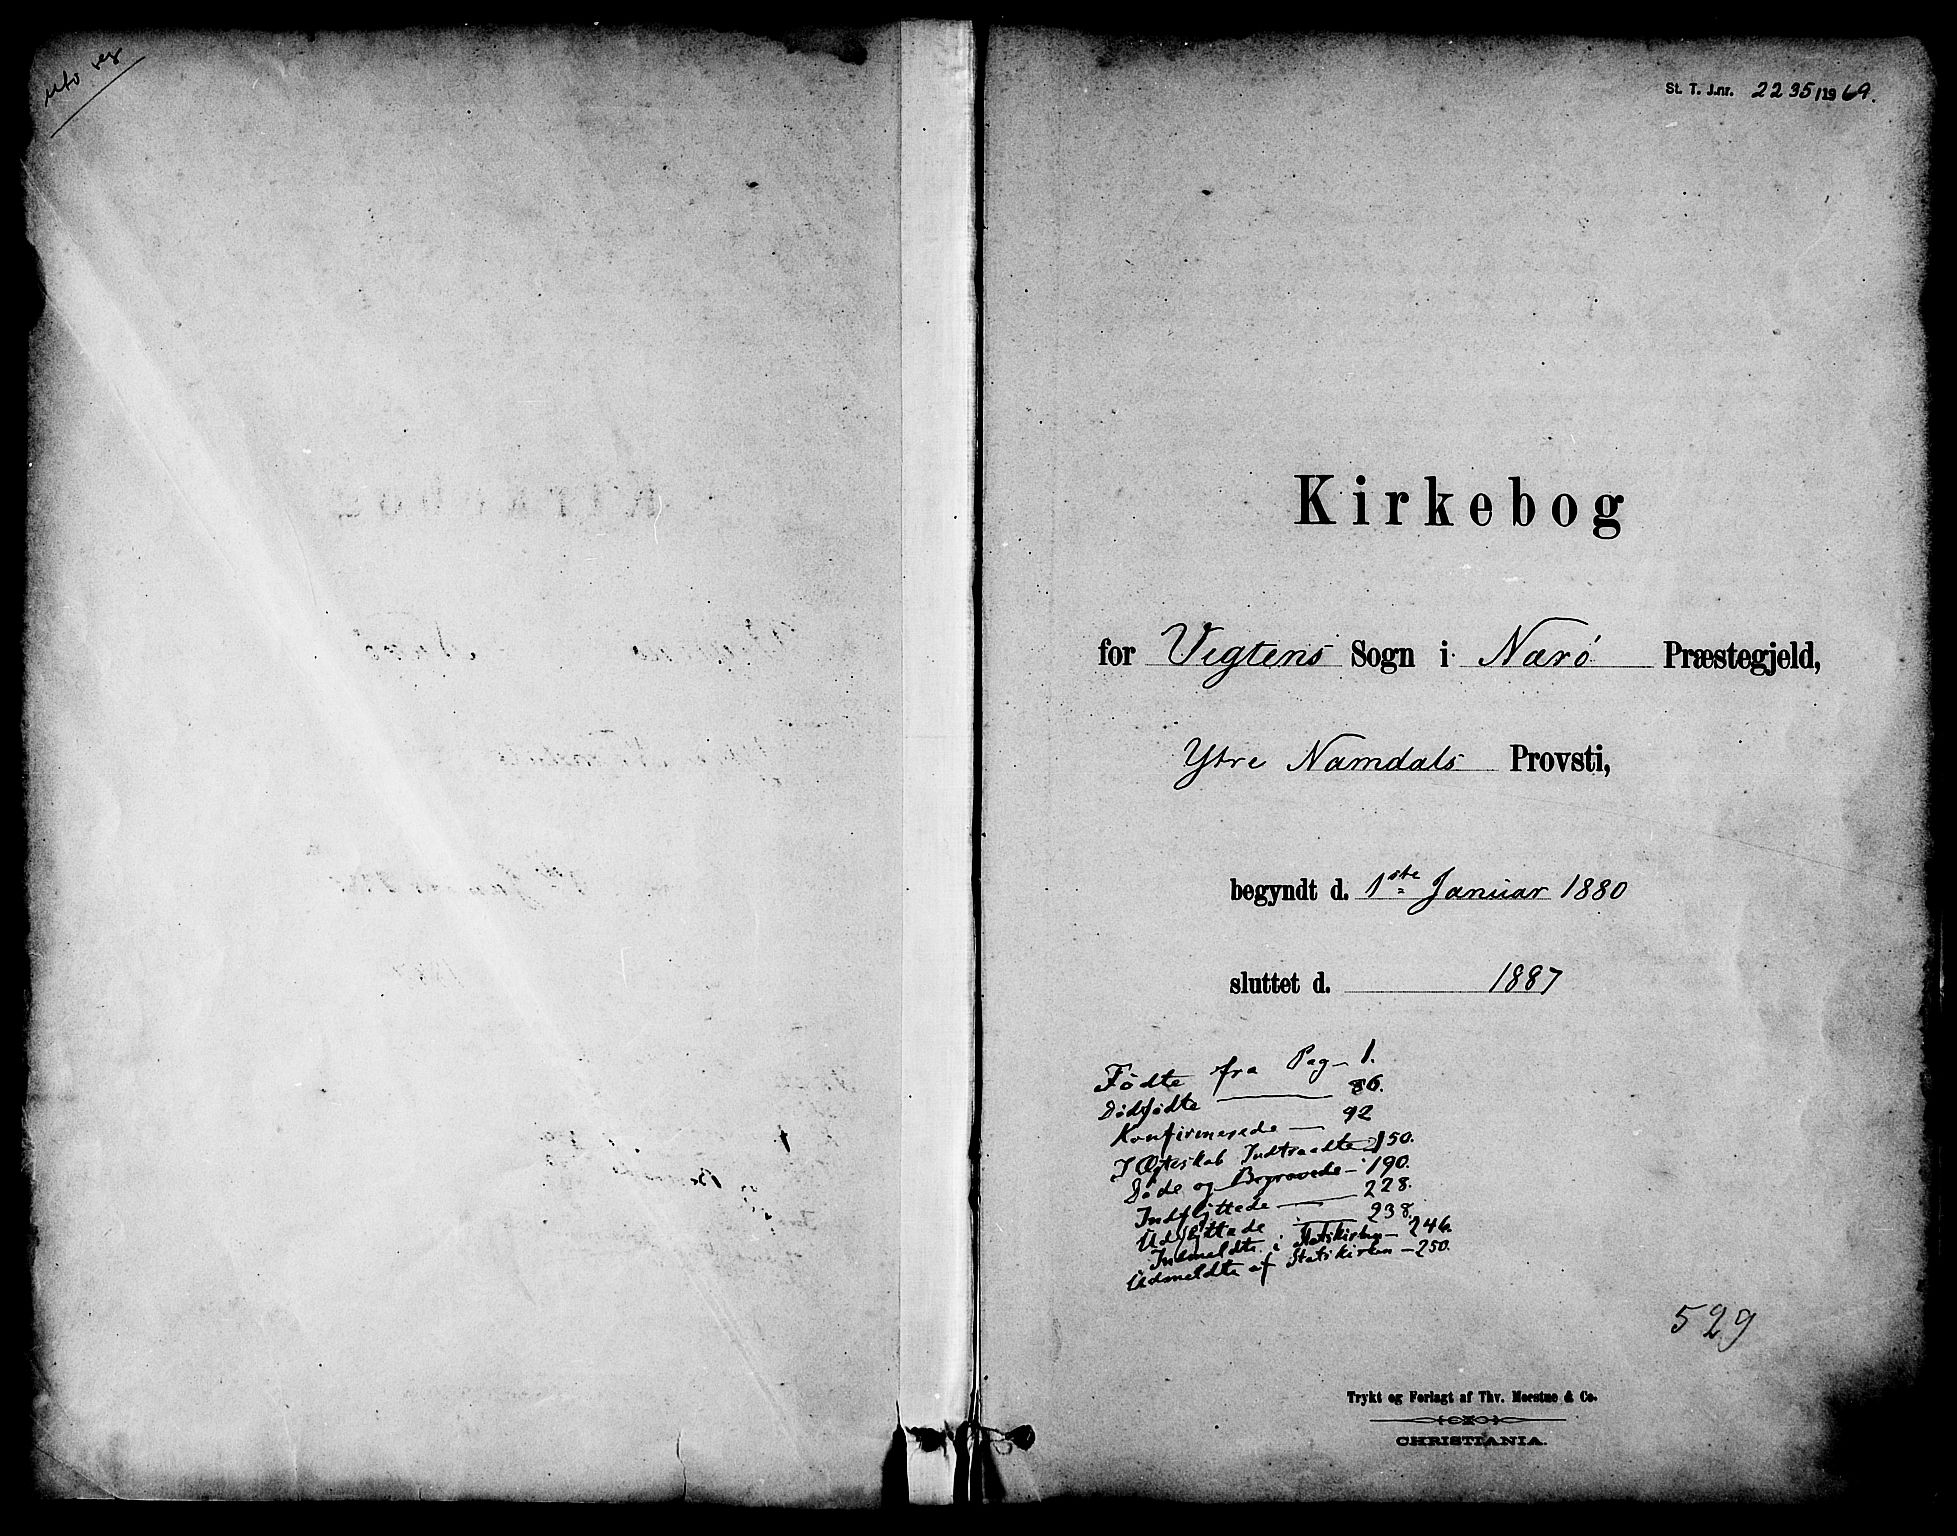 St. T. J.nr. 2235/1969.
Kirkebog
for Vigtens Sogn i Nærö Præstegjeld,
Ytre Namdals Provsti,
begyndt d. 1ste Januar 1880
sluttet d. 1887
Fødte fra Pag— 1.
Dødfødte —— 86.
Konfirmerede — 92
I Ægteskab Indtraadte 150.
Døde og Begravede — 190.
Indflyttede —— 228.
Udflyttede —— 238.
Indmeldte i Statskirken — 246.
Udmeldte af Statskirken — 250.
529
Trykt og Forlagt af Thv. Moestue & Co.
CHRISTIANIA.